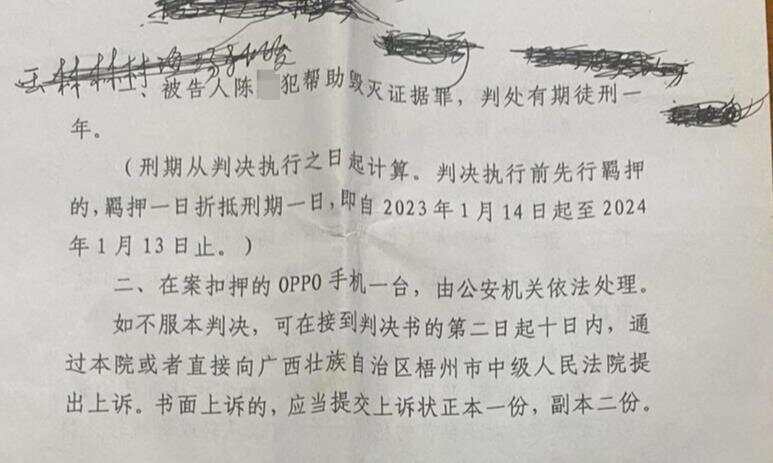 一、被告人陈 犯帮助毁灭证据罪，判处有期徒刑一
年。
（刑期从判决执行之日起计算。判决执行前先行羁押
的，羁押一日折抵刑期一日，即自 2023 年 1 月 14 日起至 2024
年 1 月 13 日止。）
二、在案扣押的 OPPO 手机一台，由公安机关依法处理。
如不服本判决，可在接到判决书的第二日起十日内，通
过本院或者直接向广西壮族自治区梧州市中级人民法院提
出上诉。书面上诉的，应当提交上诉状正本一份，副本二份。